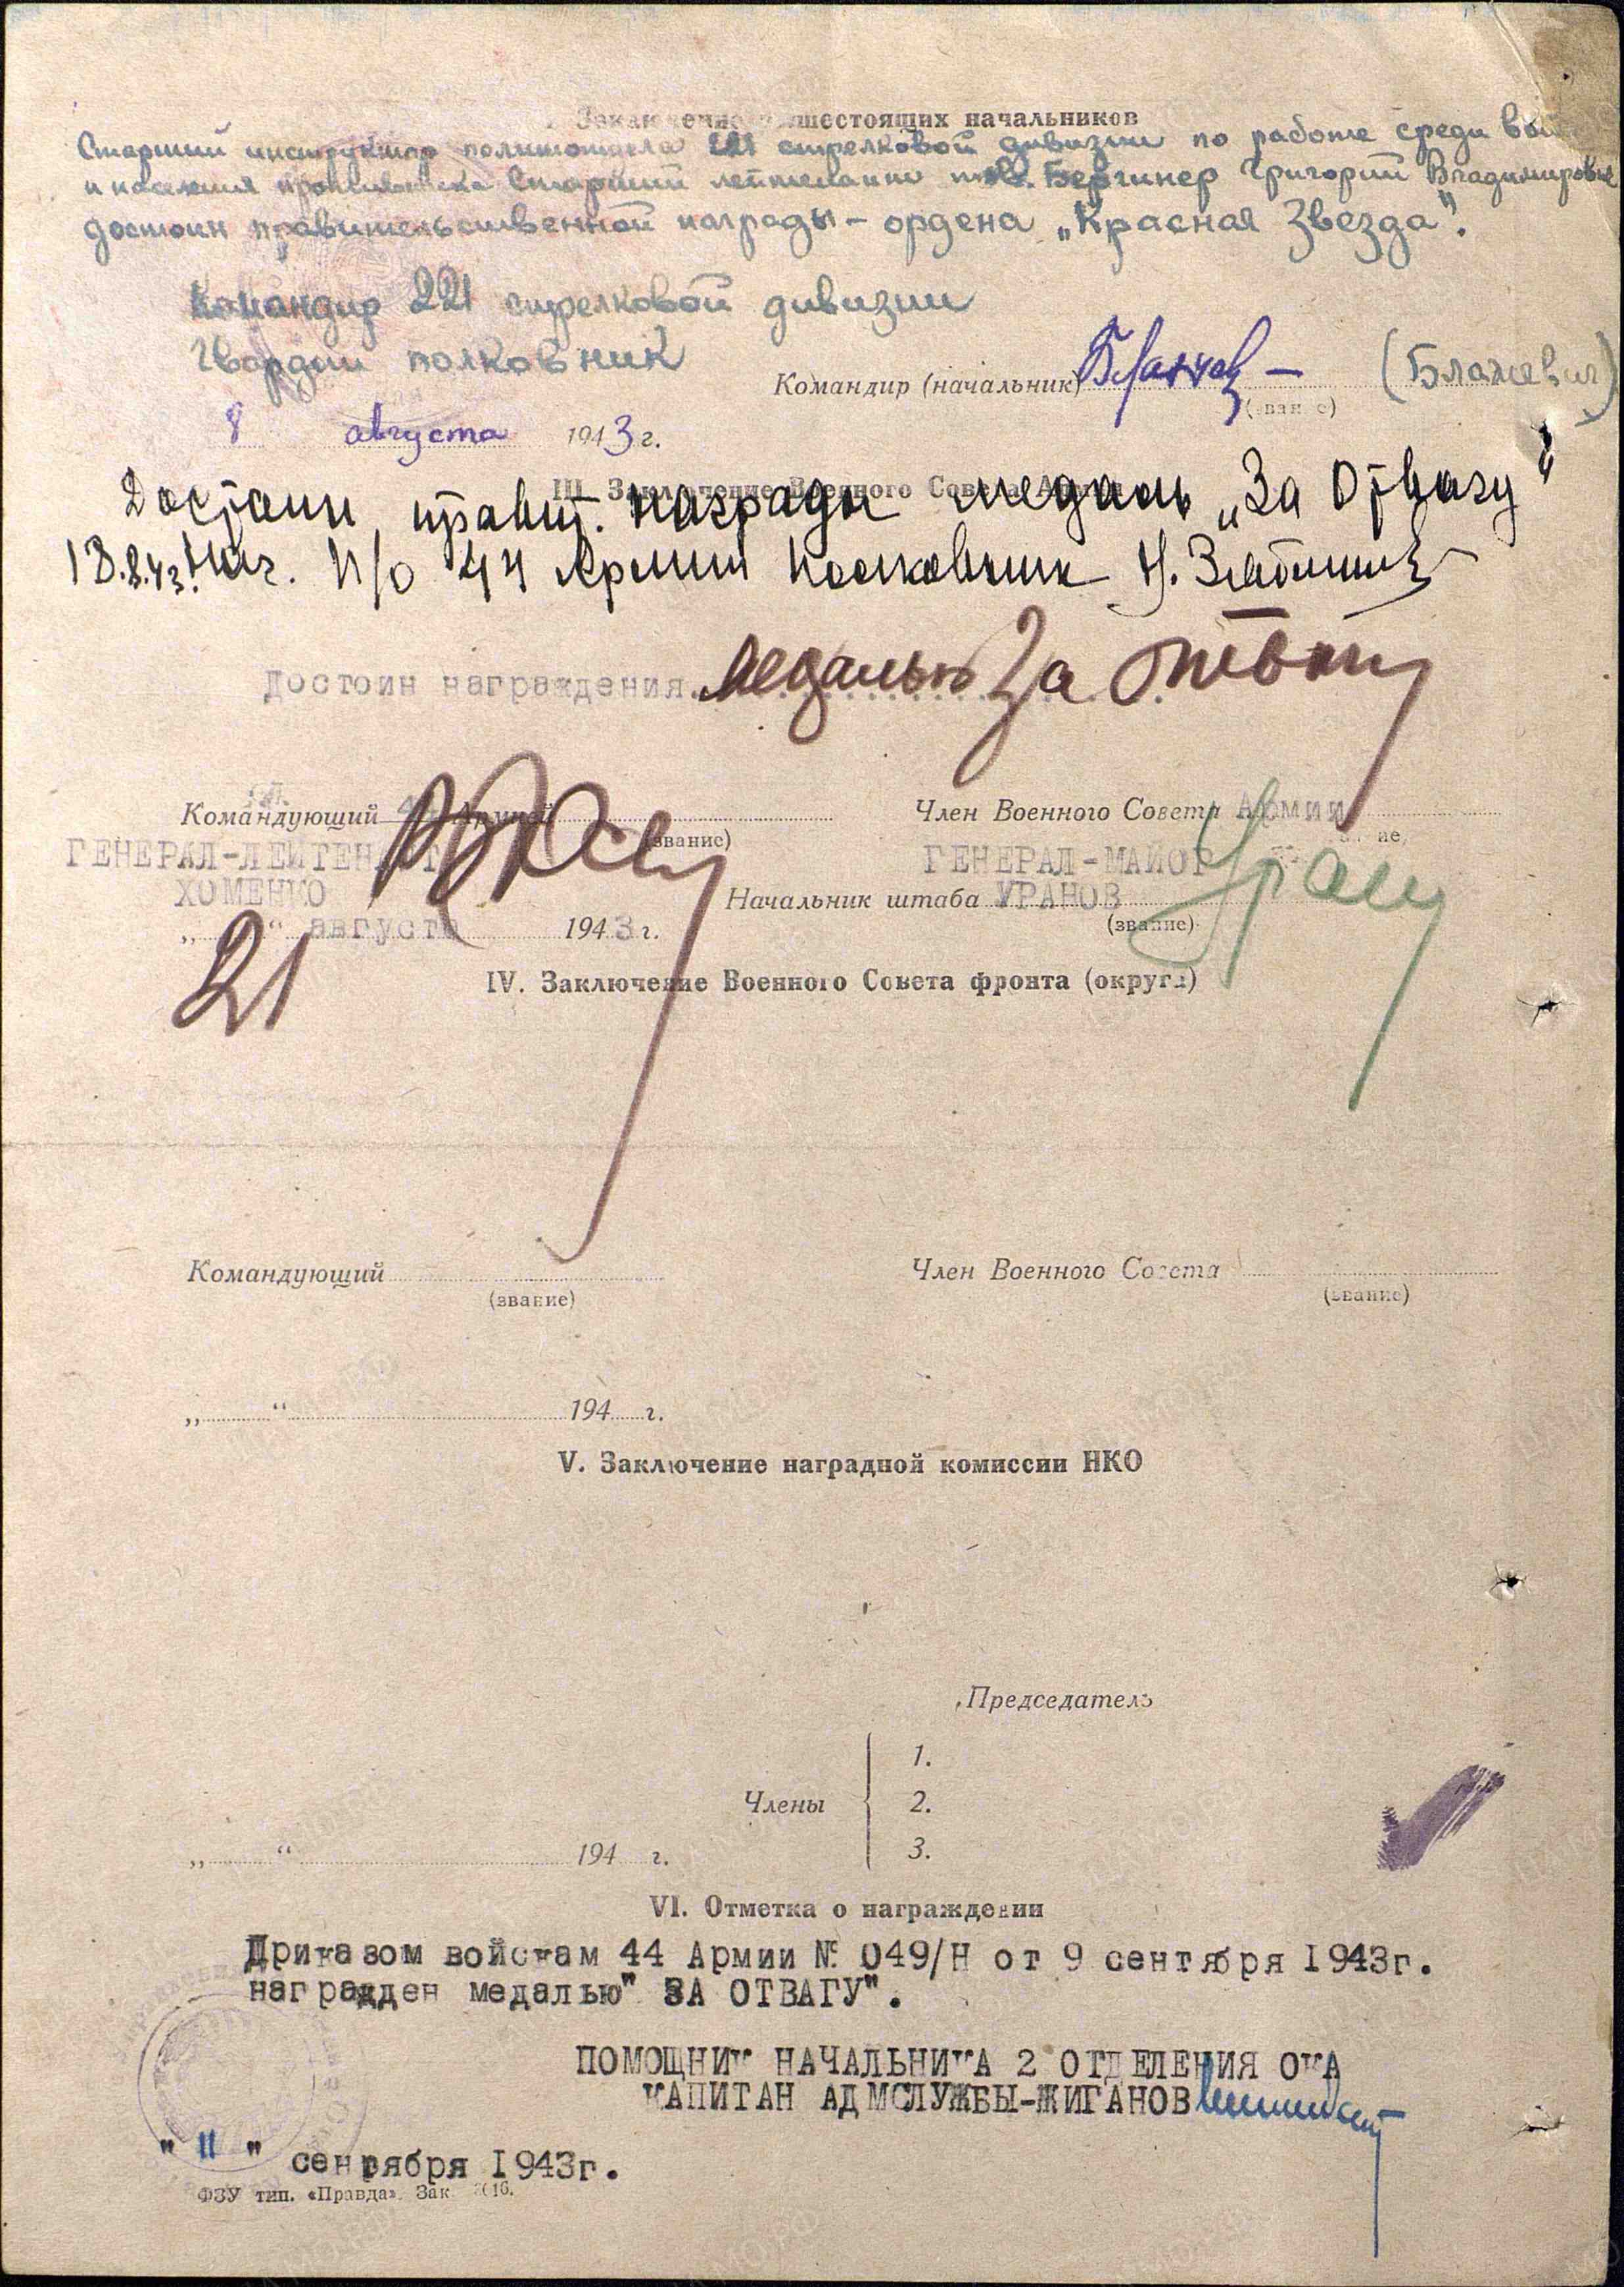 Заключение вышестоящих начальников
Старший инструктор политотдела 221 стрелковой дивизии по работе среди
и населения противника Старший лейтенант тов. Бергинер Григорий Владимирович
достоин правительственной награды - ордена „Красная Звезда".
Командир 221 стрелковой дивизии
Гвардии полковник
Командир (начальник) (Блажевич)
(звание)
8 августа 1943 г.
III. Заключение Военного Совета Армии
Достоин правит. награды медаль „За Отвагу"
13.8.43. Нач. П/О 44 Армии Полковник
Достоин награждения медалью За Отвагу
Командующий 44 Армией
(звание)
ГЕНЕРАЛ-ЛЕЙТЕНАНТ
ХОМЕНКО
Член Военного Совета Армии
(звание)
ГЕНЕРАЛ-МАЙОР
Начальник штаба УРАНОВ
(звание)
„21“ августа 1943 г.
IV. Заключение Военного Совета фронта (округа)
Командующий
(звание)
Член Военного Совета
(звание)
„ “ 194 г.
V. Заключение наградной комиссии НКО
Председатель
Члены
1.
2.
3.
„ “ 194 г.
VI. Отметка о награждении
Приказом войскам 44 Армии № 049/Н от 9 сентября 1943г.
награжден медалью" ЗА ОТВАГУ".
ПОМОЩНИК НАЧАЛЬНИКА 2 ОТДЕЛЕНИЯ ОКА
КАПИТАН АДМСЛУЖБЫ-ЖИГАНОВ
" 11 " сентября 1943г.
ФЗУ тип. «Правда». Зак.